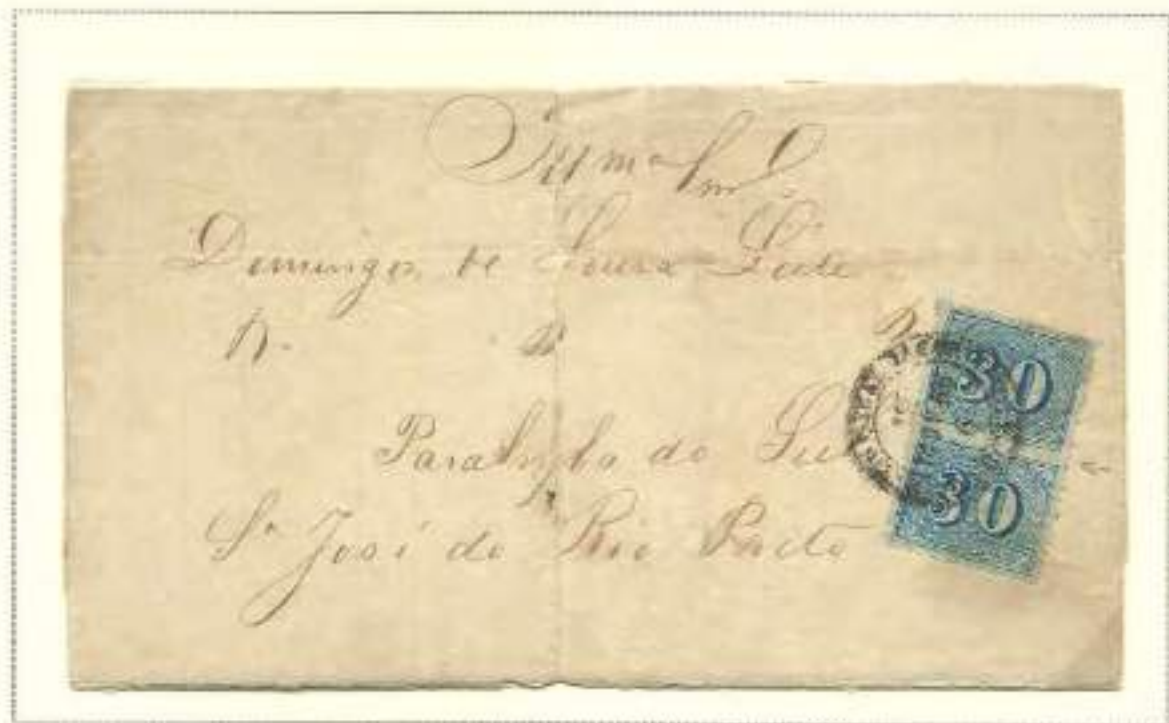 Illmo Snr
Domingos de Souza Leite
Parahyba do Sul
S. José do Rio Preto
30
30